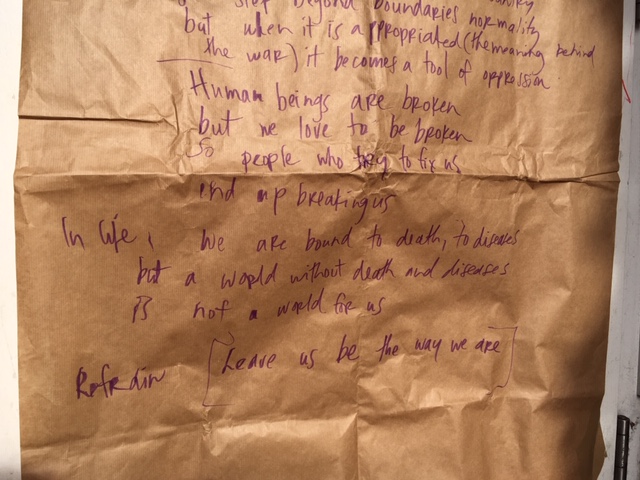 step beyond boundaries normality
but when it is appropriated (the meaning behind
the war) it becomes a tool of oppression
Human beings are broken
but we love to be broken
So people who try to fix us
end up breaking us
In life, we are bound to death, to diseases
but a world without death and diseases
is not a world for us
Refrain [Leave us be the way we are]